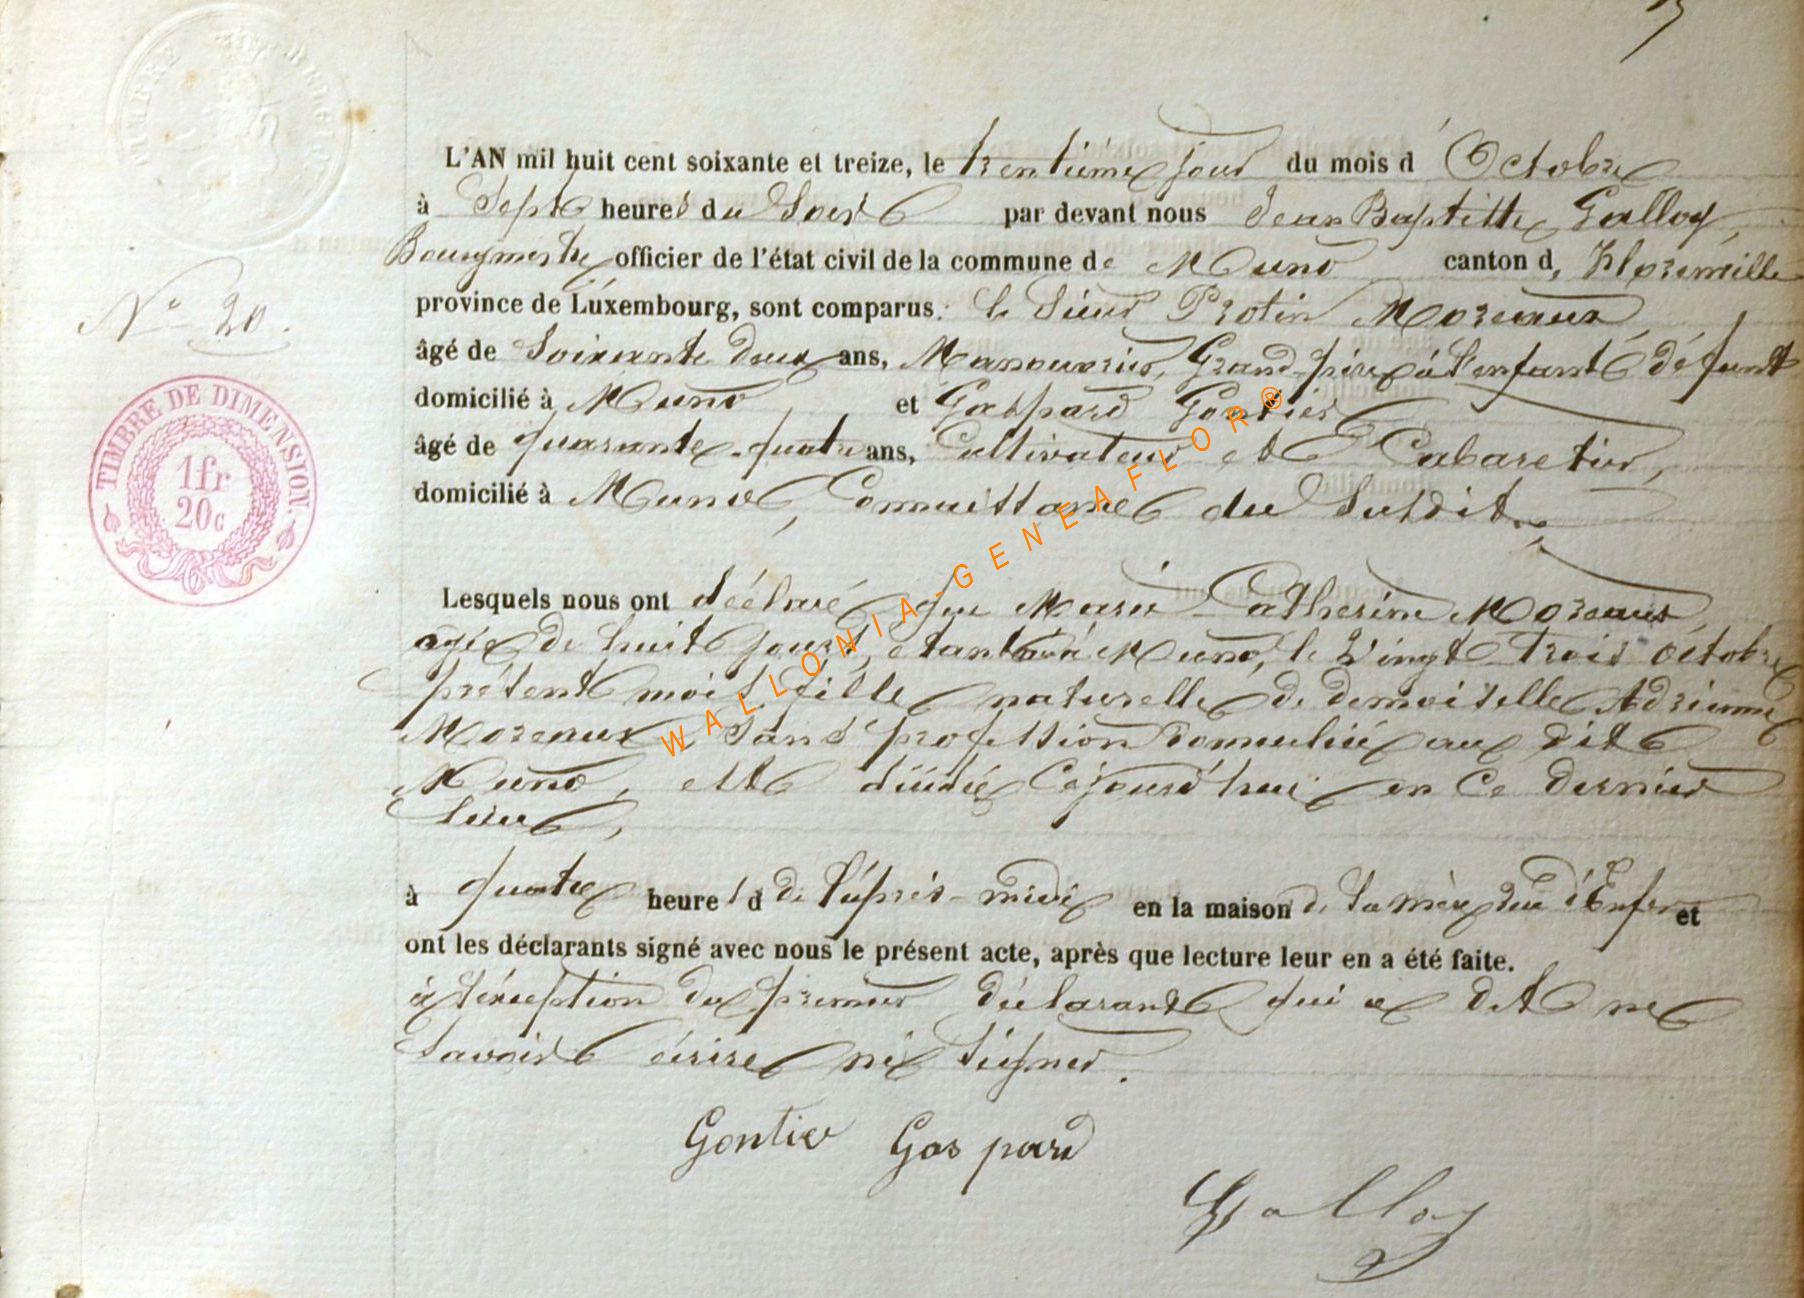 TIMBRE
N° 20.
TIMBRE DE DIMENSION.
1fr
20c
L'AN mil huit cent soixante et treize, le trentième jour du mois d'Octobre
à Sept heures du Soir par devant nous Jean Baptiste Galloy,
Bourgmestre officier de l'état civil de la commune de Muno canton d, Florenville
province de Luxembourg, sont comparus: le Sieur Protin Moreaux,
âgé de Soixante deux ans, Manouvrier, Grand-père à l'enfant défunt
domicilié à Muno, et Gaspard Gontier
âgé de quarante-quatre ans, Cultivateur et Cabaretier,
domicilié à Muno, Connaissance du Susdit,
Lesquels nous ont déclaré que Marie Catherine Moreaux,
agée de huit jours, étant née à Muno, le Vingt Trois octobre
présent mois, fille naturelle de demoiselle Adrienne
Moreaux, Sans profession domiciliée au dit
Muno, est décédée cejourd'hui en ce dernier
Lieu,
à quatre heures d de l'après-midi en la maison de Sa mère rue d'Enfer et
ont les déclarants signé avec nous le présent acte, après que lecture leur en a été faite.
à l'éxception du premier déclarant qui a dit ne
Savoir écrire ni Signer.
Gontier Gaspard
Galloy
WALLONIA-GENEAFLOR®